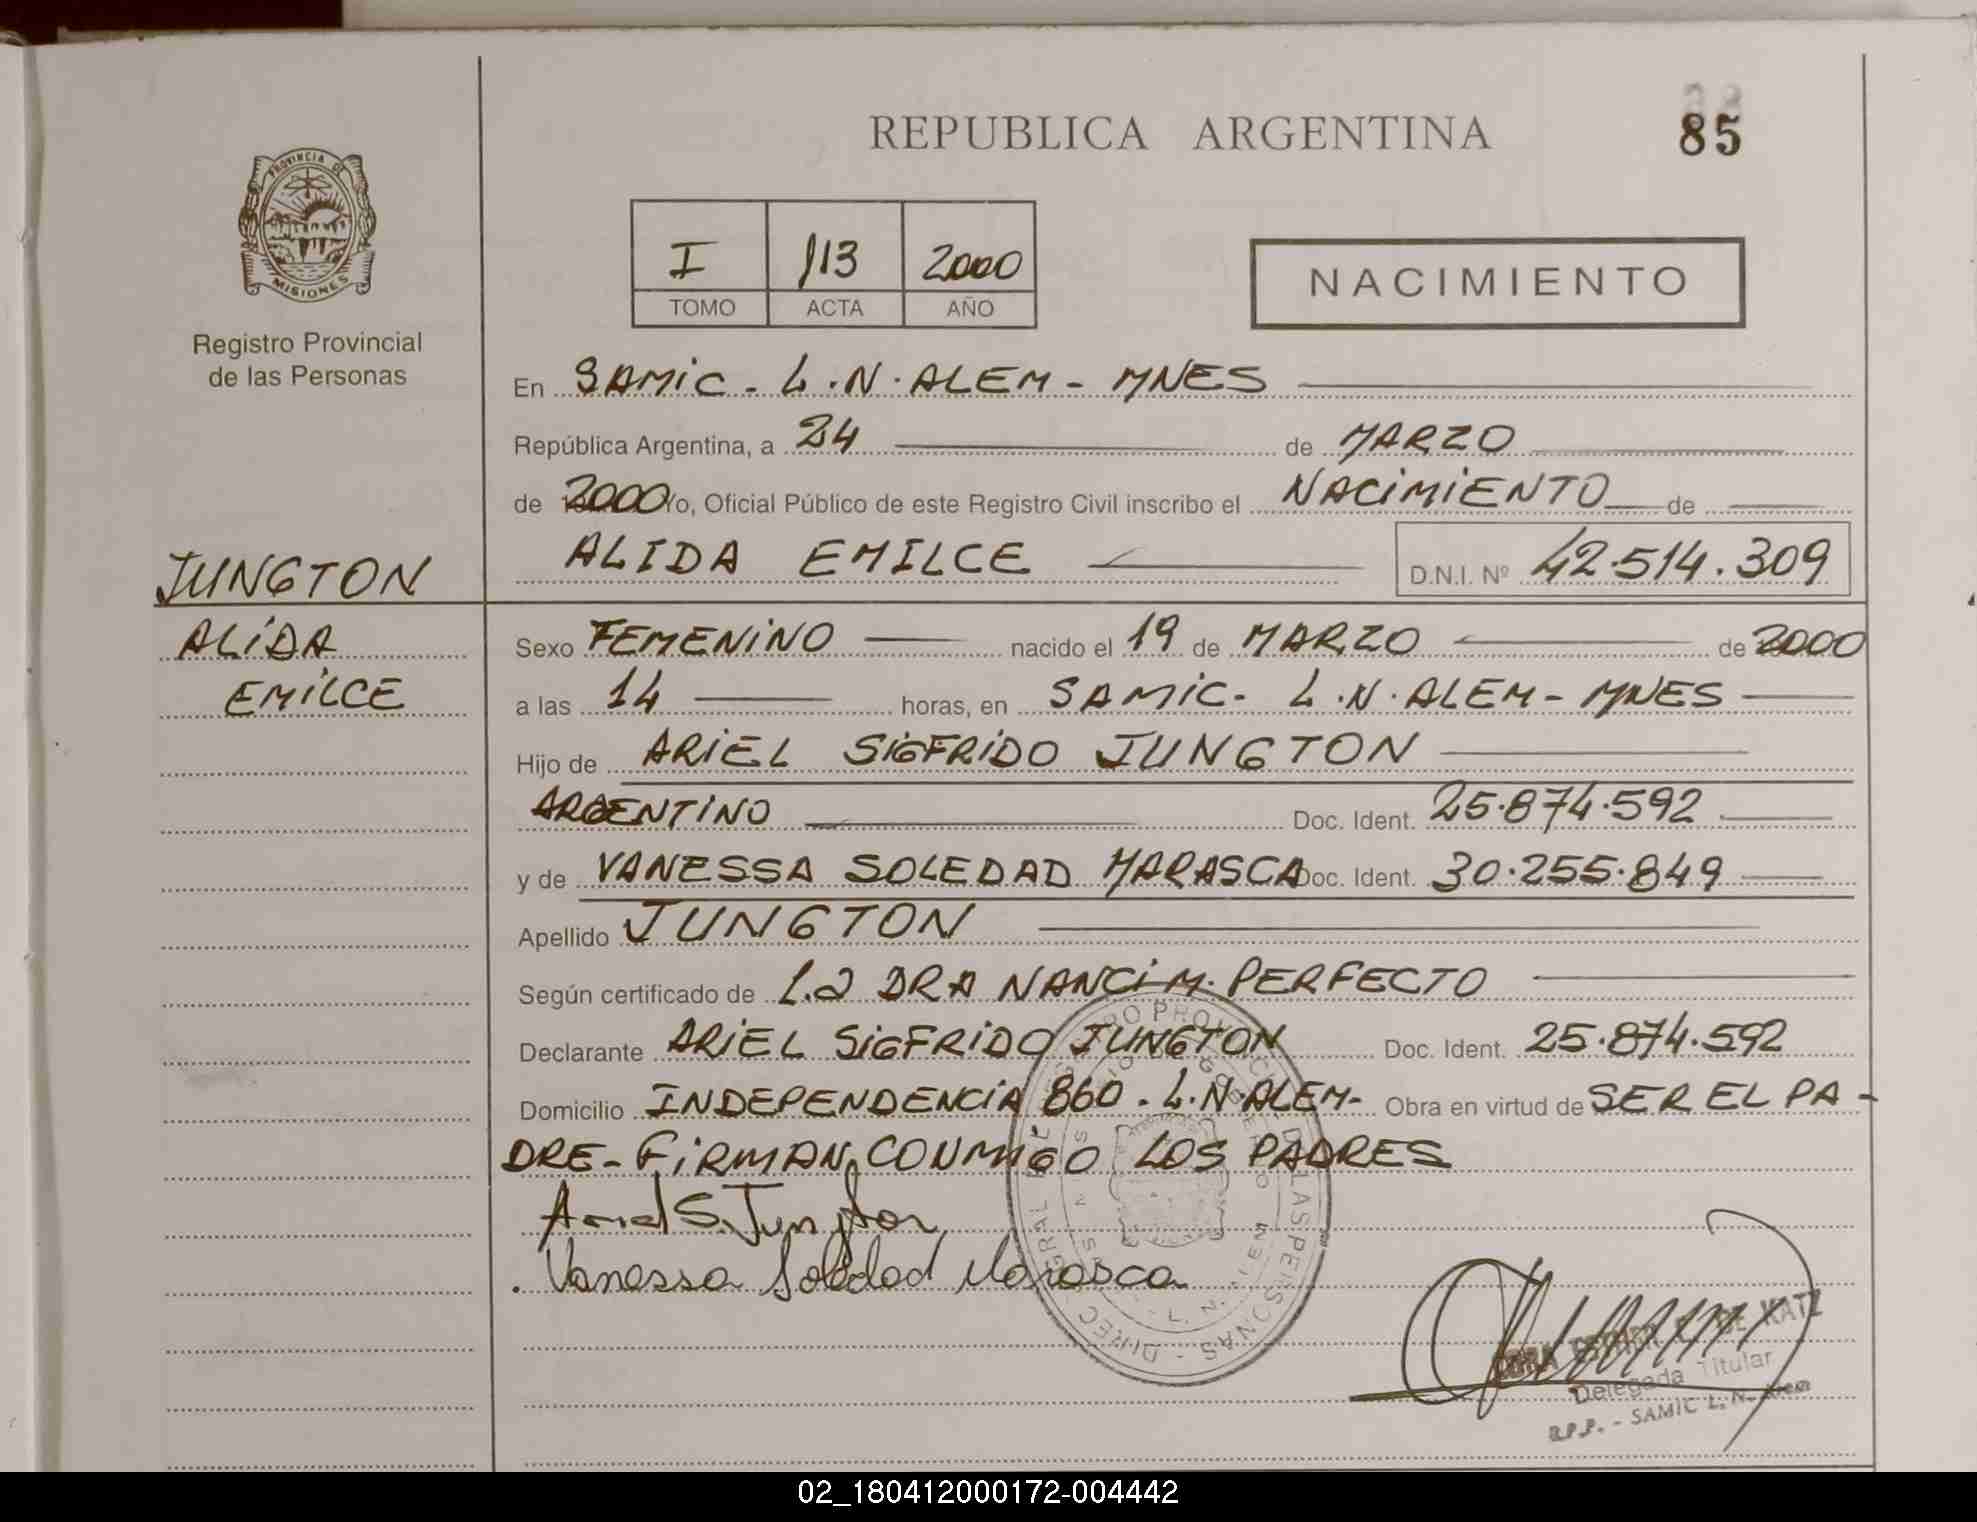 REPUBLICA ARGENTINA
85
PROVINCIA DE
MISIONES
Registro Provincial
de las Personas
I 113 2000
TOMO ACTA AÑO
NACIMIENTO
En SAMIC - L.N. ALEM - MNES
República Argentina, a 24 de MARZO
de 2000 Yo, Oficial Público de este Registro Civil inscribo el NACIMIENTO de
ALIDA EMILCE D.N.I. Nº 42.514.309
JUNGTON
ALIDA
EMILCE
Sexo FEMENINO nacido el 19 de MARZO de 2000
a las 14 horas, en SAMIC - L.N. ALEM - MNES
Hijo de ARIEL SIGFRIDO JUNGTON
ARGENTINO Doc. Ident. 25.874.592
y de VANESSA SOLEDAD MARASCA Doc. Ident. 30.255.849
Apellido JUNGTON
Según certificado de LA DRA NANCI M. PERFECTO
Declarante ARIEL SIGFRIDO JUNGTON Doc. Ident. 25.874.592
Domicilio INDEPENDENCIA 860 - L.N. ALEM - Obra en virtud de SER EL PA -
DRE - FIRMAN CONMIGO LOS PADRES
Ariel S. Jungton
Vanessa Soledad Marasca
ESTHER DE KATZ
Delegada Titular
R.P.P. - SAMIC L. N. Alem
02_180412000172-004442